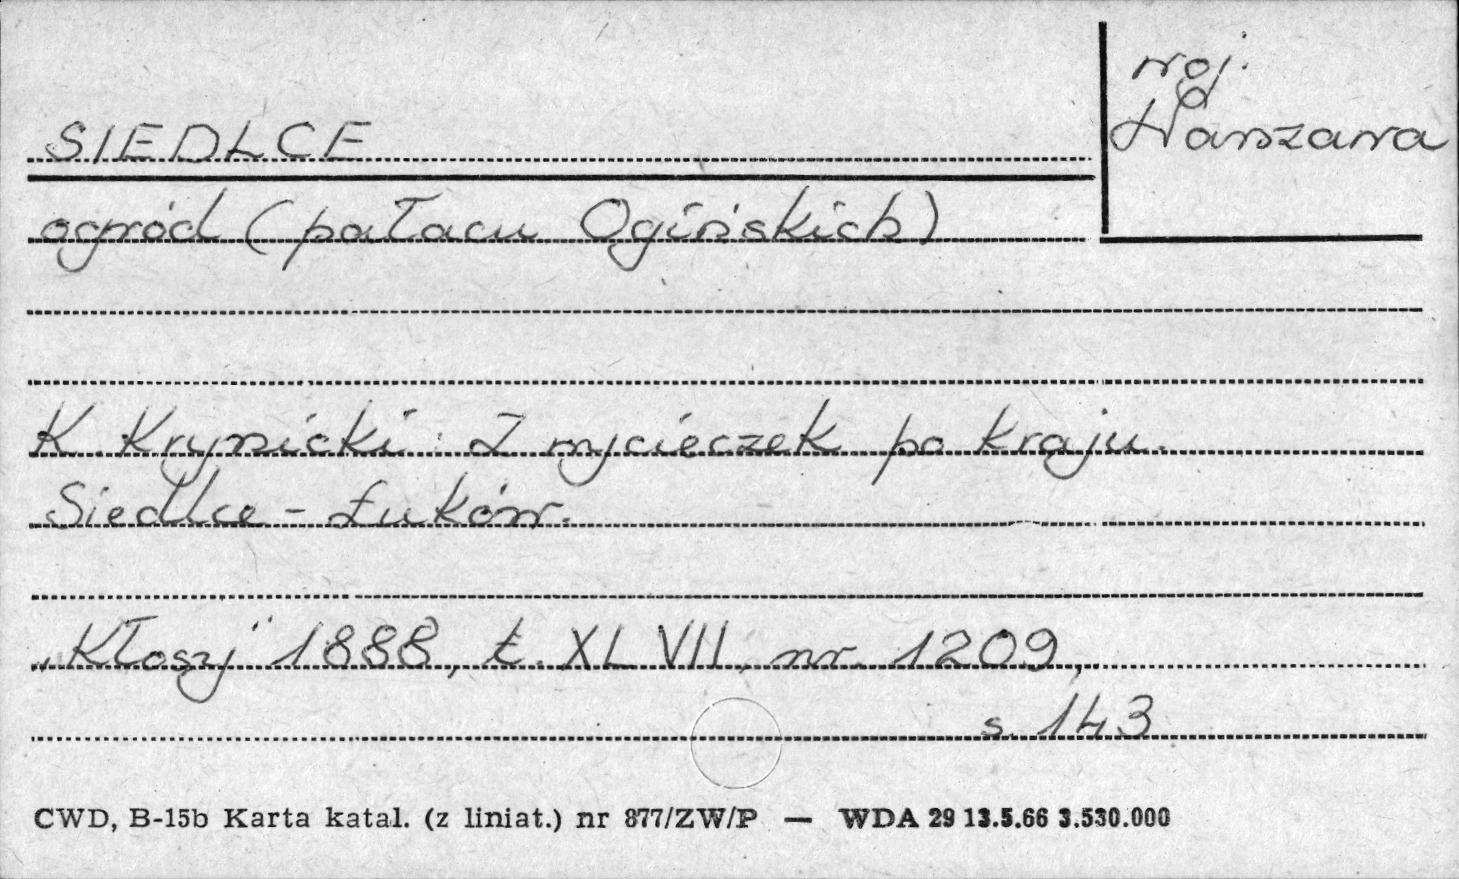 woj.
Warszawa
SIEDLCE
ogród (pałacu Ogińskich)
K. Krynicki: Z wycieczek po kraju.
Siedlce - Łuków.
„Kłosy" 1888, t. XLVII, nr. 1209,
s. 143
CWD, B-15b Karta katal. (z liniat.) nr 877/ZW/P — WDA 29 13.5.66 3.530.000